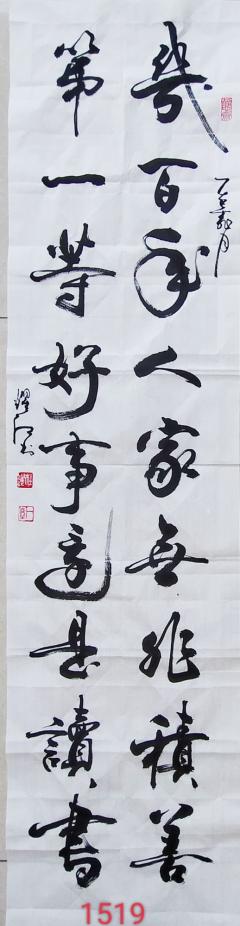 幾百年人家無非積善
第一等好事還是讀書
1519